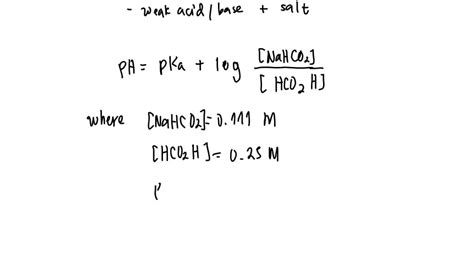 - weak acid/base + salt
pH = pKa + log [NaHCO2] / [HCO2H]
where [NaHCO2] = 0.111 M
[HCO2H] = 0.25 M